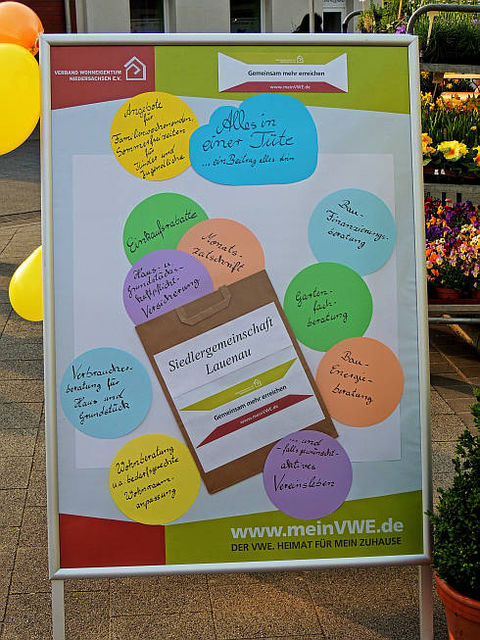 VERBAND WOHNEIGENTUM
NIEDERSACHSEN E.V.
Gemeinsam mehr erreichen
www.meinVWE.de
Angebote
für
Familienwochenenden,
Sommerfreizeiten
für
Kinder und
Jugendliche
Alles in
einer Tüte
... ein Beitrag alles drin
Einkaufsrabatte
Monats-
zeitschrift
Haus- u.
Grundstücks-
haftpflicht-
Versicherung
Bau-
Finanzierungs-
beratung
Garten-
fach-
beratung
Bau-
Energie-
beratung
Verbraucher-
beratung für
Haus und
Grundstück
Siedlergemeinschaft
Lauenau
Gemeinsam mehr erreichen
www.meinVWE.de
Wohnberatung
u.a. bedarfsgerechte
Wohnraum-
anpassung
... und
- falls gewünscht -
aktives
Vereinsleben
www.meinVWE.de
DER VWE. HEIMAT FÜR MEIN ZUHAUSE